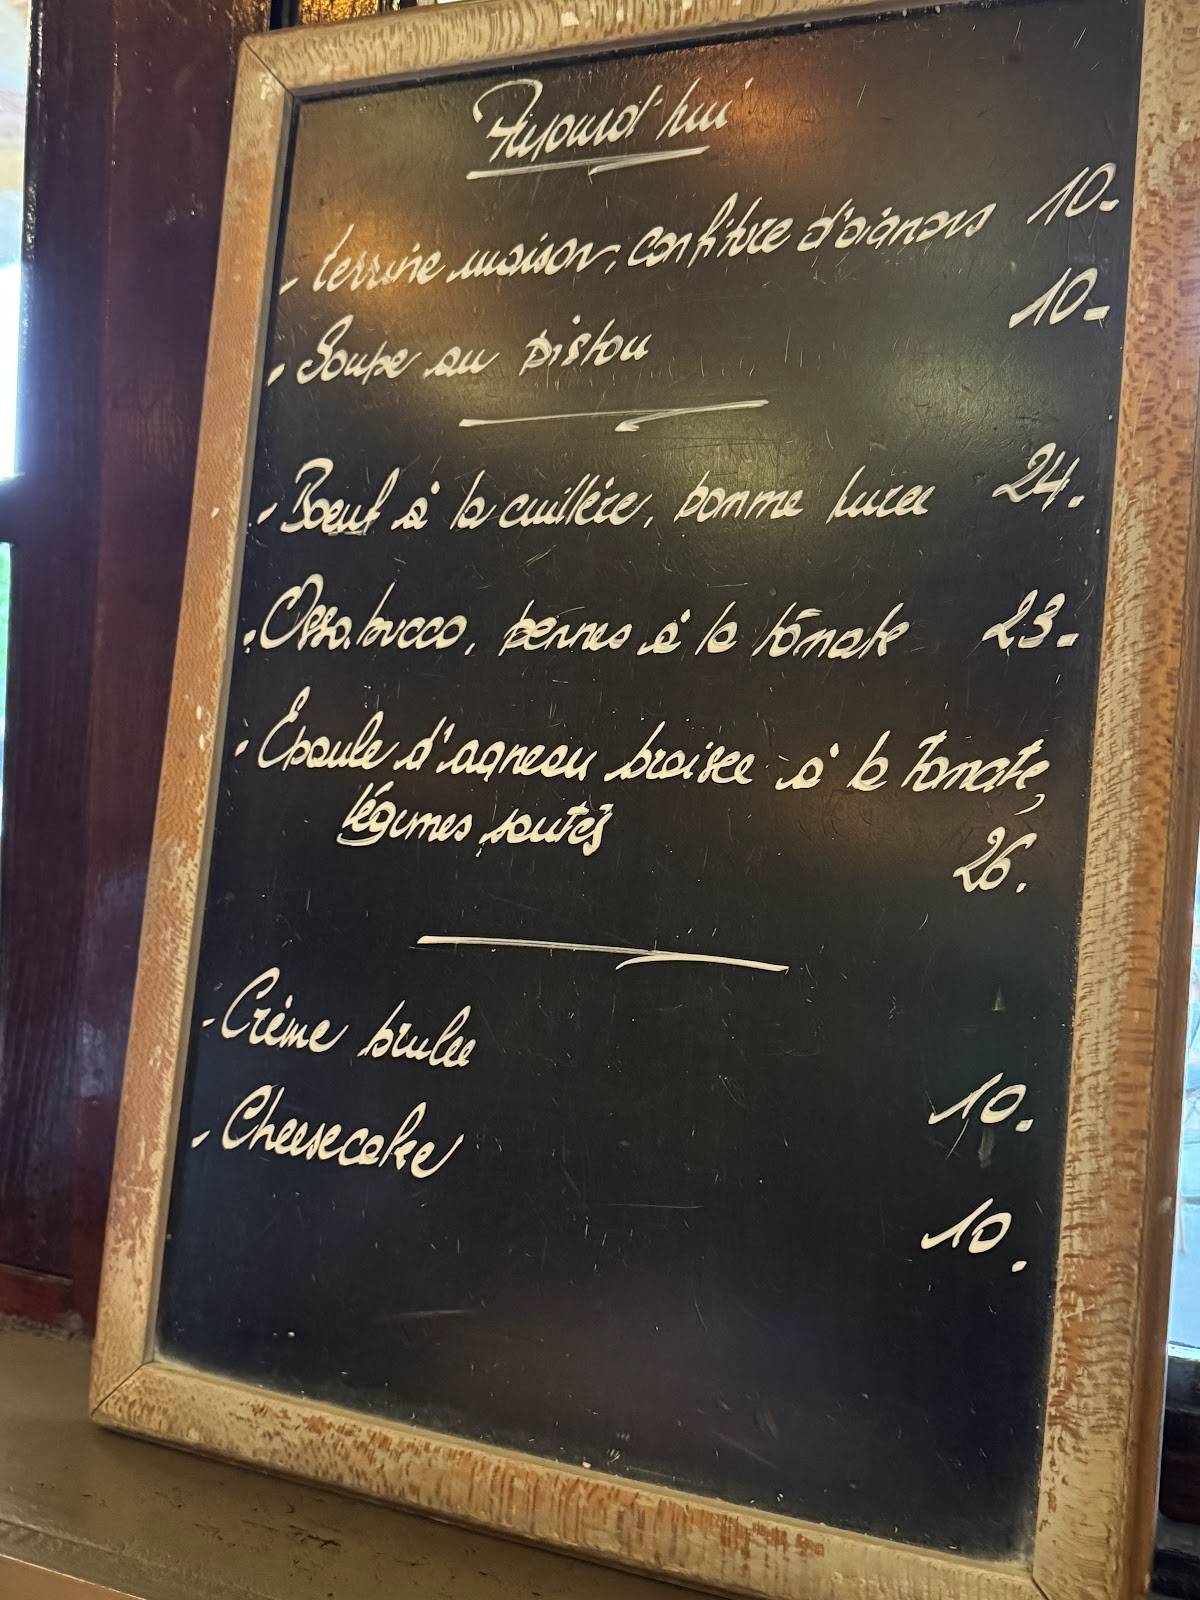 Aujourd'hui
- terrine maison, confiture d'oignons 10-
- Soupe au pistou 10-
- Boeuf à la cuillère, pomme purée 24.
. Osso.bucco, pennes à la tomate 23-
. Epaule d'agneau braisée à la tomate,
légumes sautés 26.
- Crème brulée 10.
- Cheesecake 10.